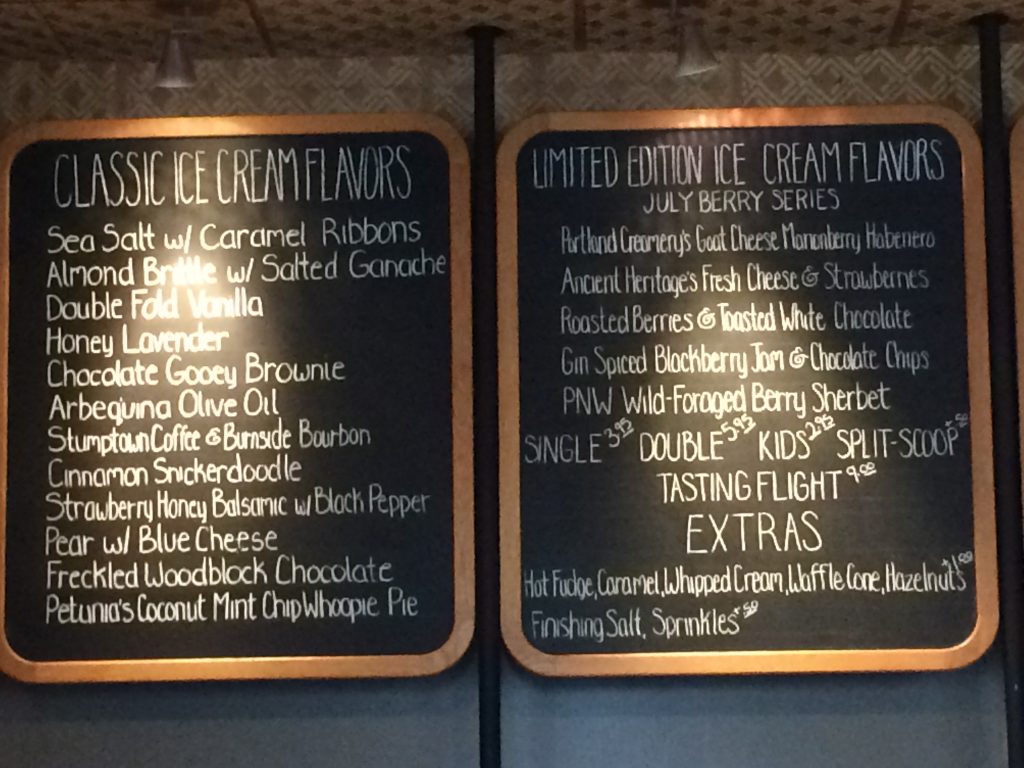 CLASSIC ICE CREAM FLAVORS
Sea Salt w/ Caramel Ribbons
Almond Brittle w/ Salted Ganache
Double Fold Vanilla
Honey Lavender
Chocolate Gooey Brownie
Arbequina Olive Oil
Stumptown Coffee & Burnside Bourbon
Cinnamon Snickerdoodle
Strawberry Honey Balsamic w/ Black Pepper
Pear w/ Blue Cheese
Freckled Woodblock Chocolate
Petunia's Coconut Mint Chip Whoopie Pie
LIMITED EDITION ICE CREAM FLAVORS
JULY BERRY SERIES
Portland Creamery's Goat Cheese Marionberry Habenero
Ancient Heritage's Fresh Cheese & Strawberries
Roasted Berries & Toasted White Chocolate
Gin Spiced Blackberry Jam & Chocolate Chips
PNW Wild-Foraged Berry Sherbet
SINGLE 3.95 DOUBLE 5.95 KIDS 2.95 SPLIT-SCOOP +.50
TASTING FLIGHT 9.00
EXTRAS
Hot Fudge, Caramel, Whipped Cream, Waffle Cone, Hazelnuts +1.00
Finishing Salt, Sprinkles +.50